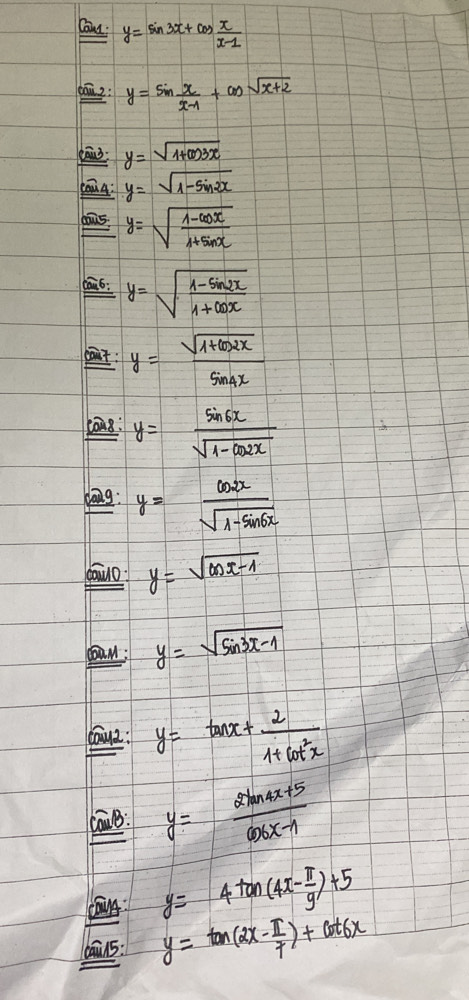 Câu1: y = sin3x + cos x/(x-1)
Câu2: y = sin x/(x-1) + cos √(x+2)
Câu3: y = √(1+cos3x)
Câu4: y = √(1-sin2x)
Câu5: y = √((1-cosx)/(1+sinx))
Câu6: y = √((1-sin2x)/(1+cosx))
Câu7: y = √(1+cos2x)/sin4x
Câu8: y = sin6x/√(1-cos2x)
Câu9: y = cos2x/√(1-sin6x)
Câu10: y = √(cosx-1)
Câu11: y = √(sin3x-1)
Câu12: y = tanx + 2/(1+cot²x)
Câu13: y = (2tan4x+5)/(cos6x-1)
Câu14: y = 4tan(4x-π/9)+5
Câu15: y = tan(2x-π/7) + cot6x